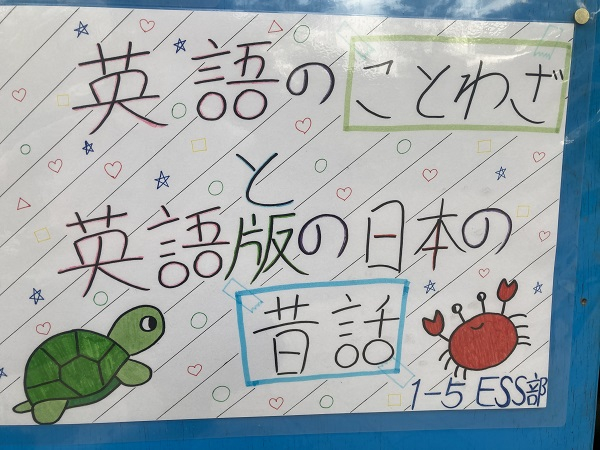 英語のことわざ
と
英語版の日本の
昔話
1-5 ESS部